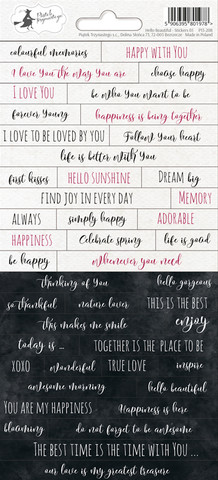 Piątek Trzynastego
Hello Beautiful - Stickers 01 | P13-208
5 906395 801978 >
colourful memories HAPPY WITH YOU
I love you the way you are choose happy
I LOVE YOU be who you want to be
forever young happiness is being together
I LOVE TO BE LOVED BY YOU Follow your heart
life is better with you
first kisses HELLO SUNSHINE Dream big
FIND JOY IN EVERY DAY MEMORY
ALWAYS simply happy ADORABLE
HAPPINESS Celebrate spring life is good
be happy Whenever you need
thinking of you hello gorgeous
so thankful nature lover THIS IS THE BEST
this makes me smile enjoy
today is ... TOGETHER IS THE PLACE TO BE
XOXO wonderful TRUE LOVE inspire
awesome morning hello beautiful
YOU ARE MY HAPPINESS Happiness is here
blooming do not forget to be awesome
THE BEST TIME IS THE TIME WITH YOU ...
our love is my greatest treasure